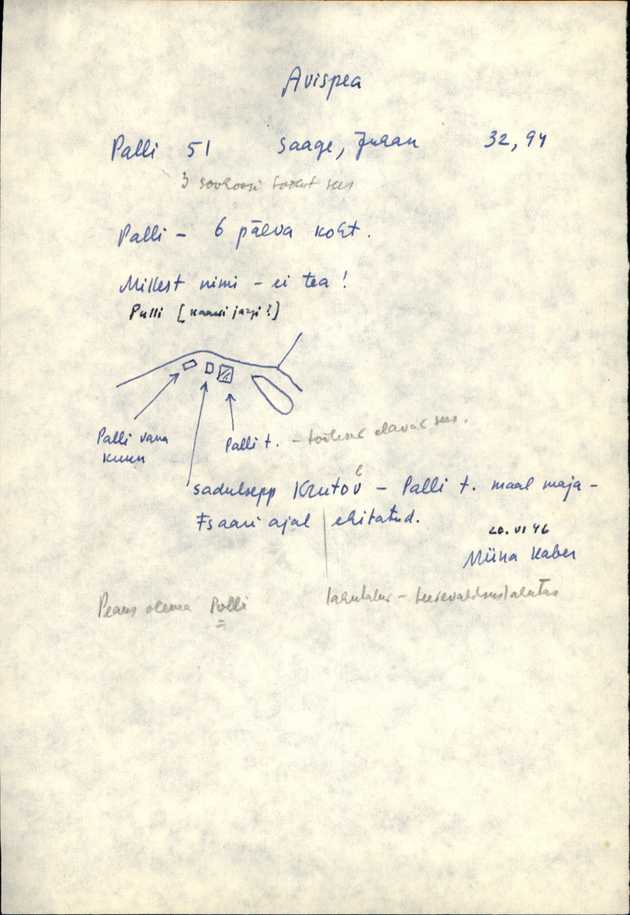 Avispea
Palli 51 Saage, Juhan 32,94
3 sovhoosi sees
Palli - 6 päeva koht.
Millest nimi - ei tea!
Pulli [kaardi järgi?]
Palli vana
kuun
Palli t. - elavad sees.
Sadulsepp Krutov - Palli t. maal maja -
Tsaari ajal ehitatud.
20.VI 46
Miina Kaber
Peaks olema Polli